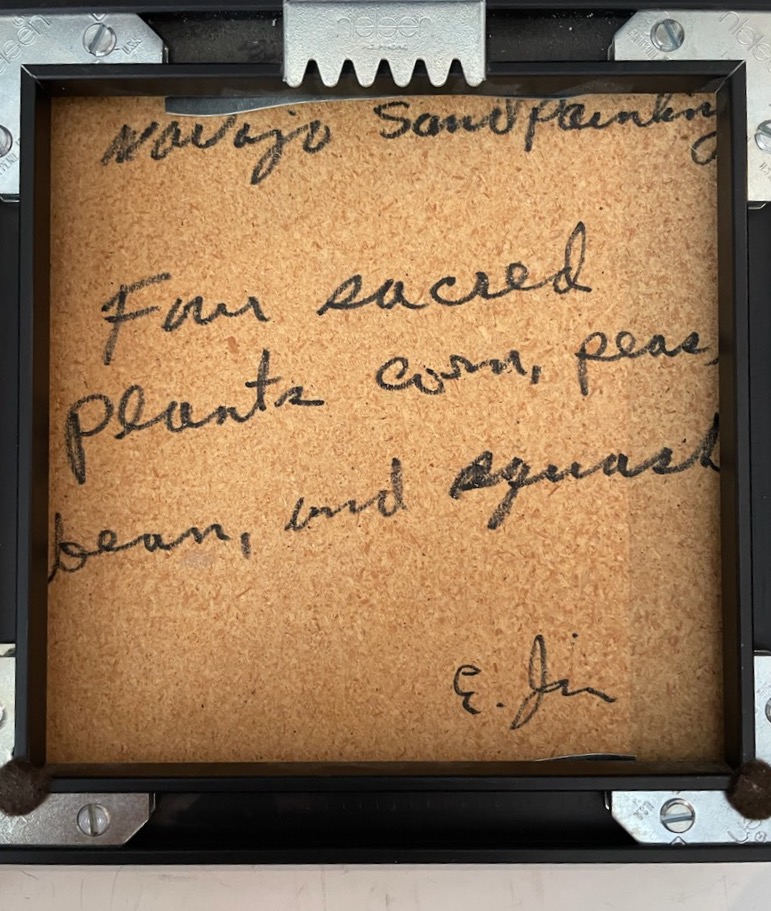 nielsen
Navajo Sandpainting
Four sacred
plants corn, peas,
bean, and squash
E. Jim